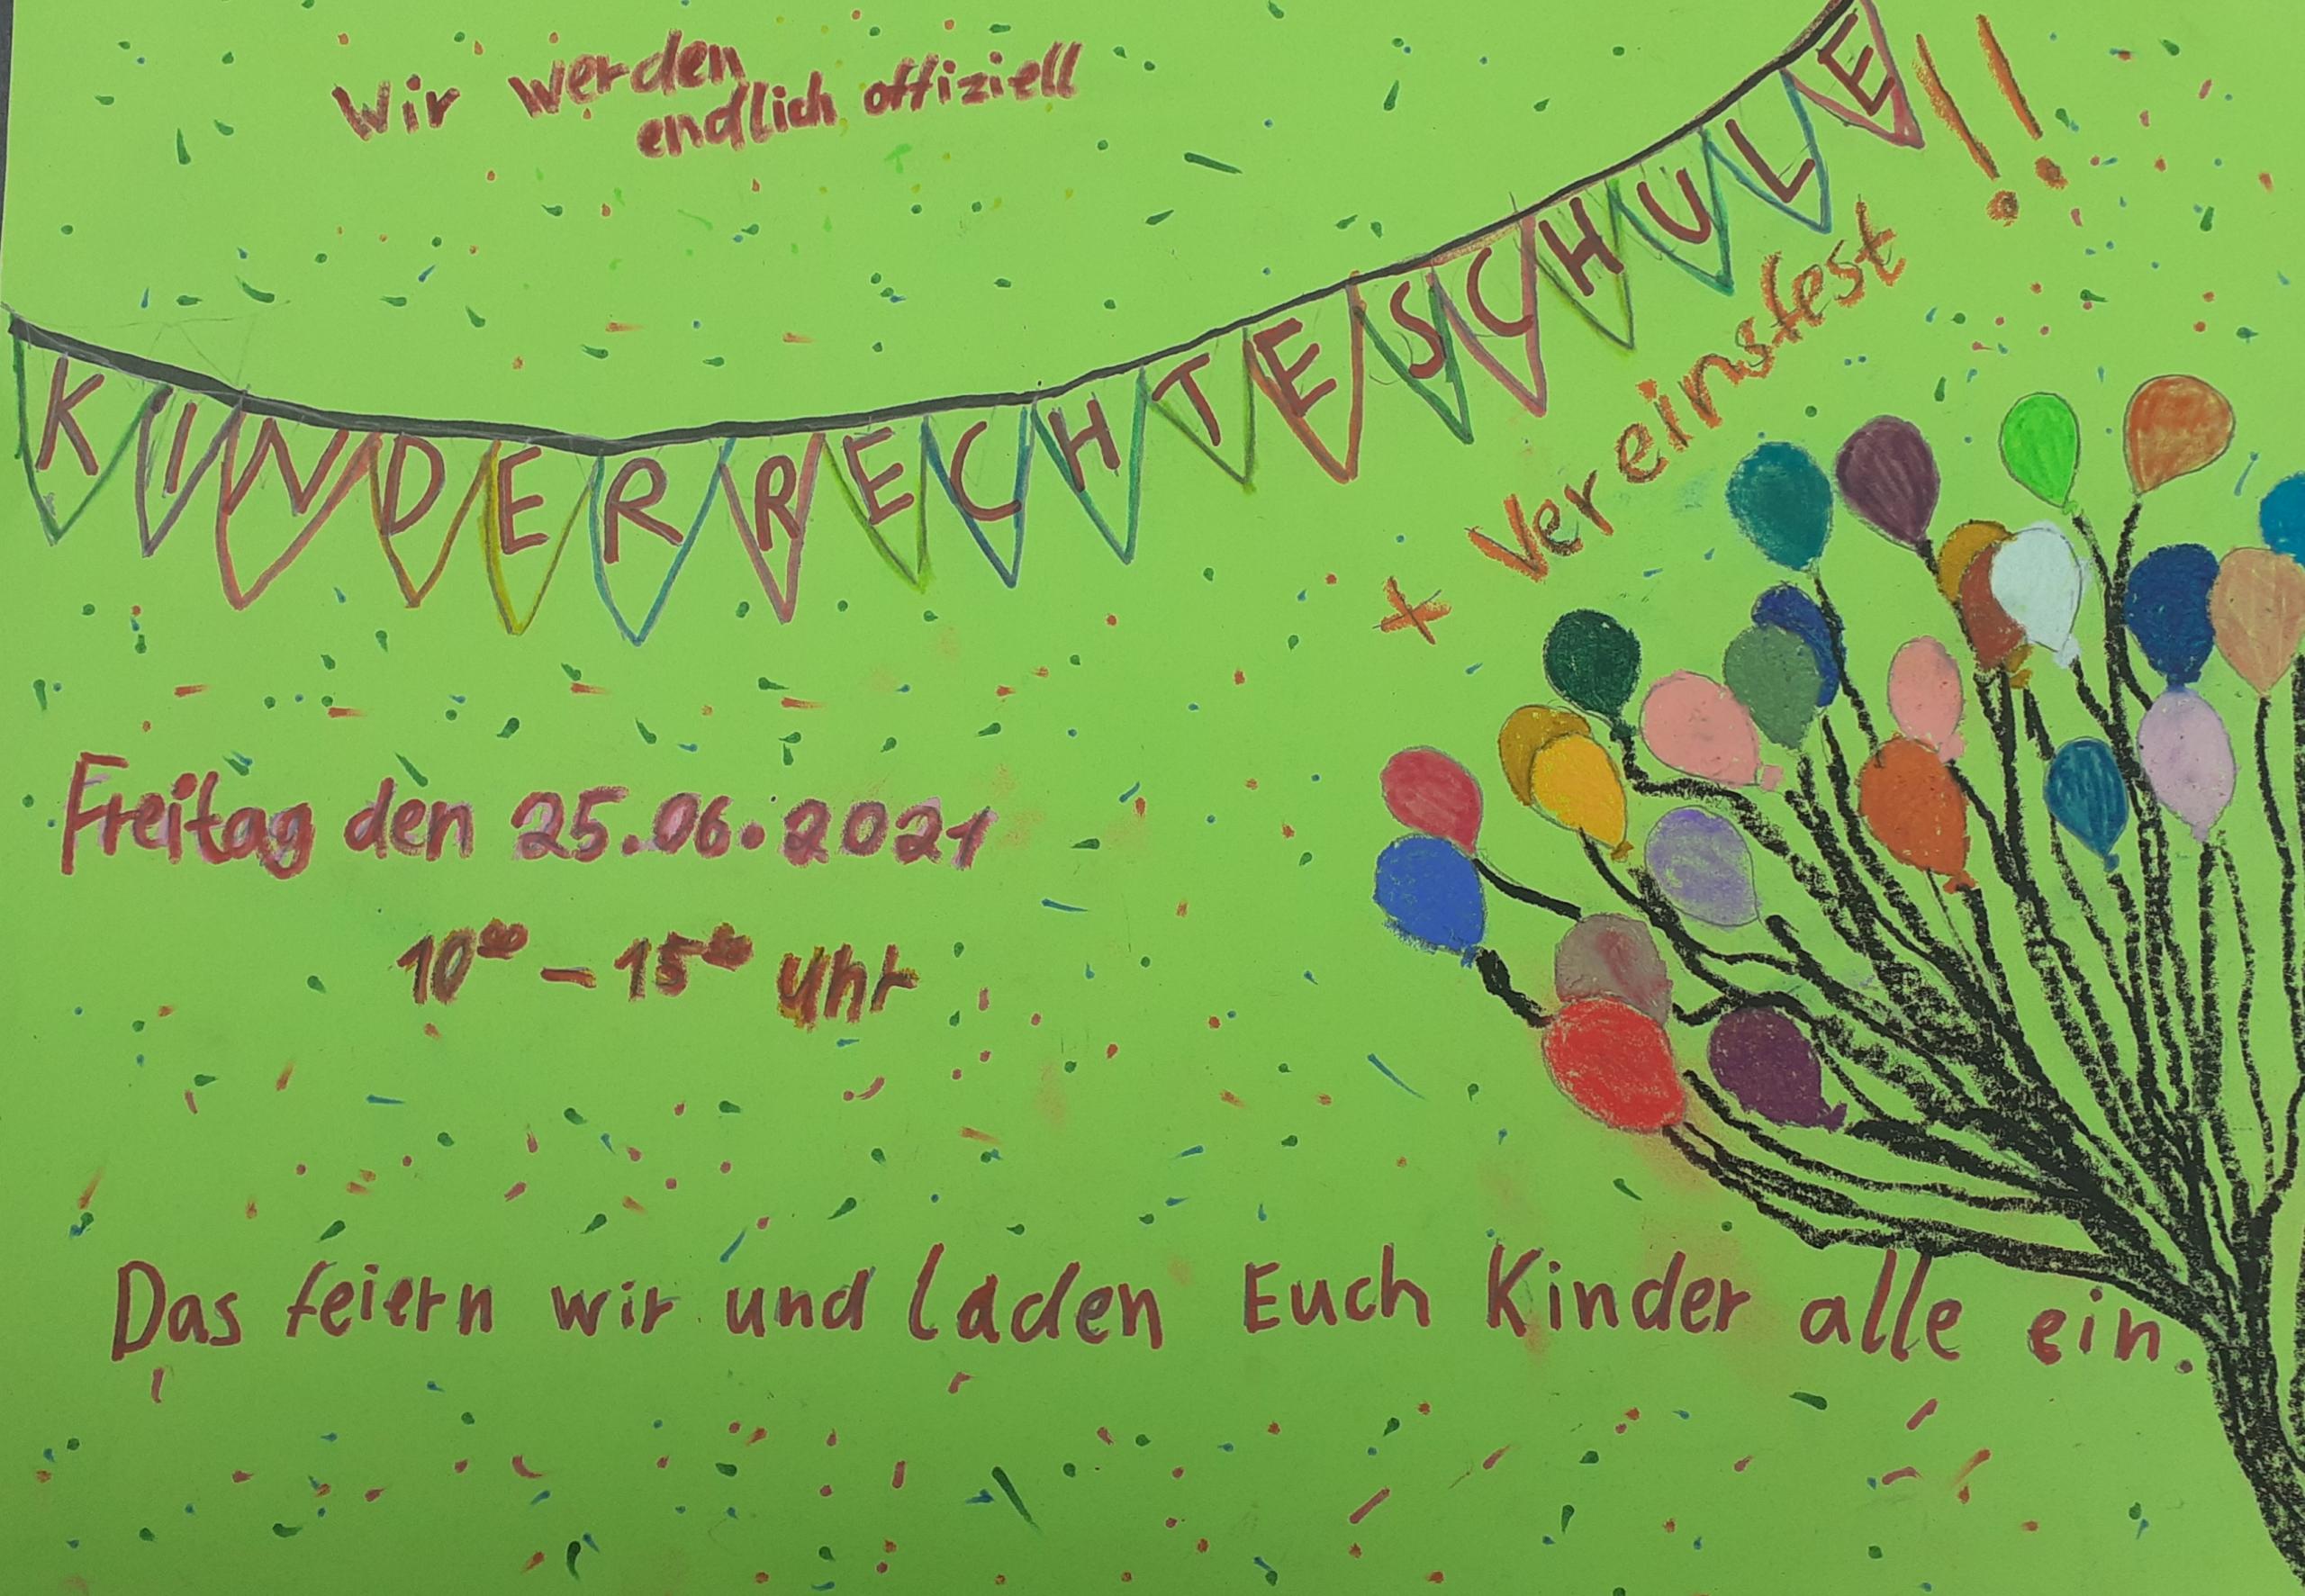 Wir werden
endlich offiziell
KINDERRECHTESCHULE!!
+ Vereinsfest
Freitag den 25.06.2021
10⁰⁰ – 15⁰⁰ Uhr
Das feiern wir und laden Euch Kinder alle ein.